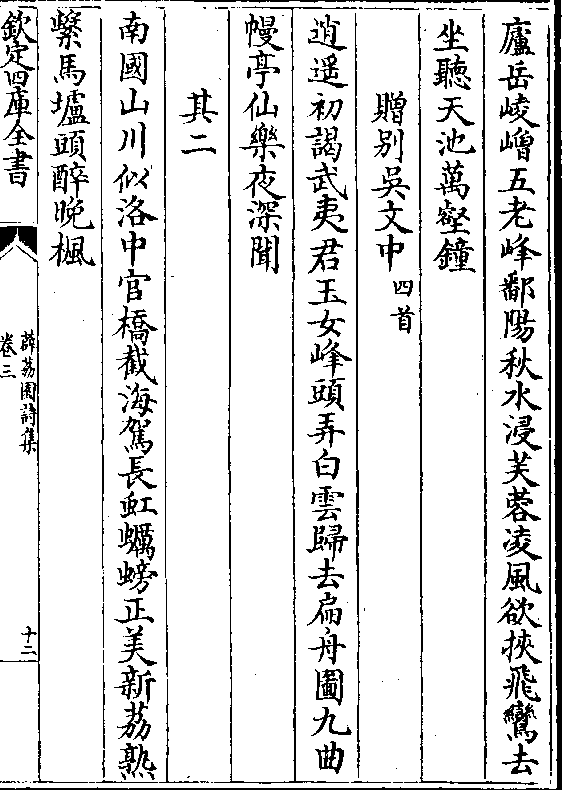 廬岳崚嶒五老峰鄱陽秋水浸芙蓉凌風欲挾飛鸞去
坐聽天池萬壑鐘
贈别吳文中四首
逍遥初謁武夷君玉女峰頭弄白雲歸去扁舟圖九曲
幔亭仙樂夜深聞
其二
南國山川似洛中官橋截海駕長虹蠣螃正美新荔熟
繫馬壚頭醉晚楓
欽定四庫全書
薜荔園詩集
卷三
十二